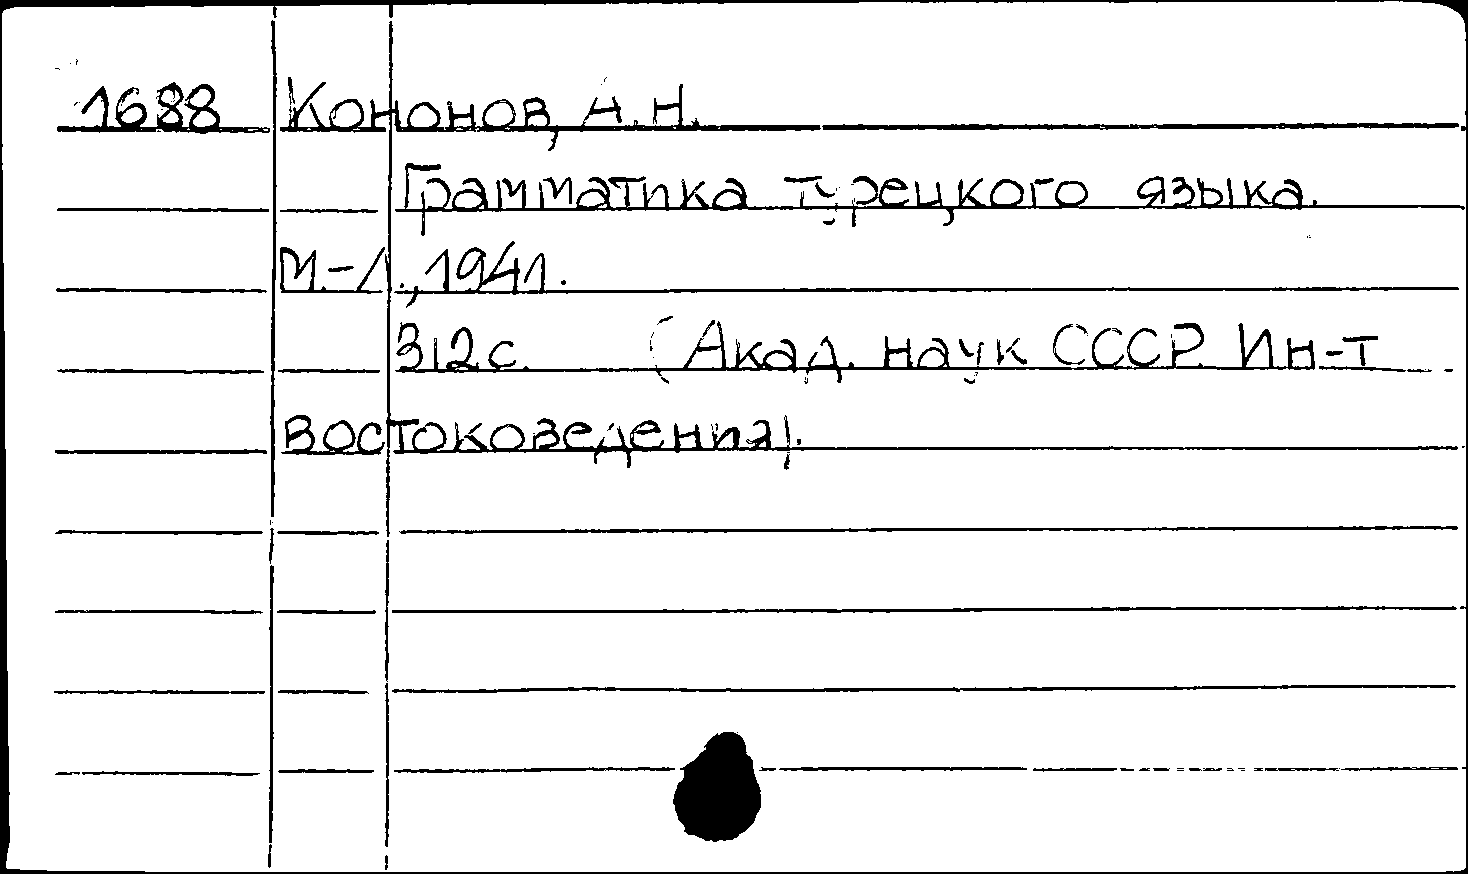 1688 Кононов, А.Н.
Грамматика турецкого языка.
М.-Л., 1941.
312с. (Акад. наук СССР. Ин-т
востоковедения).